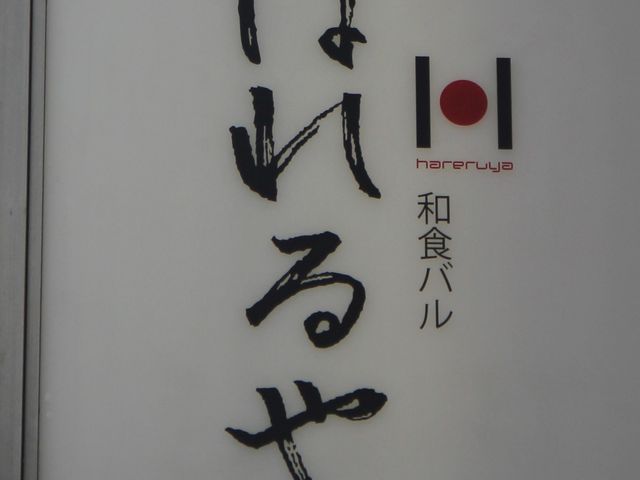 はれるや
hareruya
和食バル